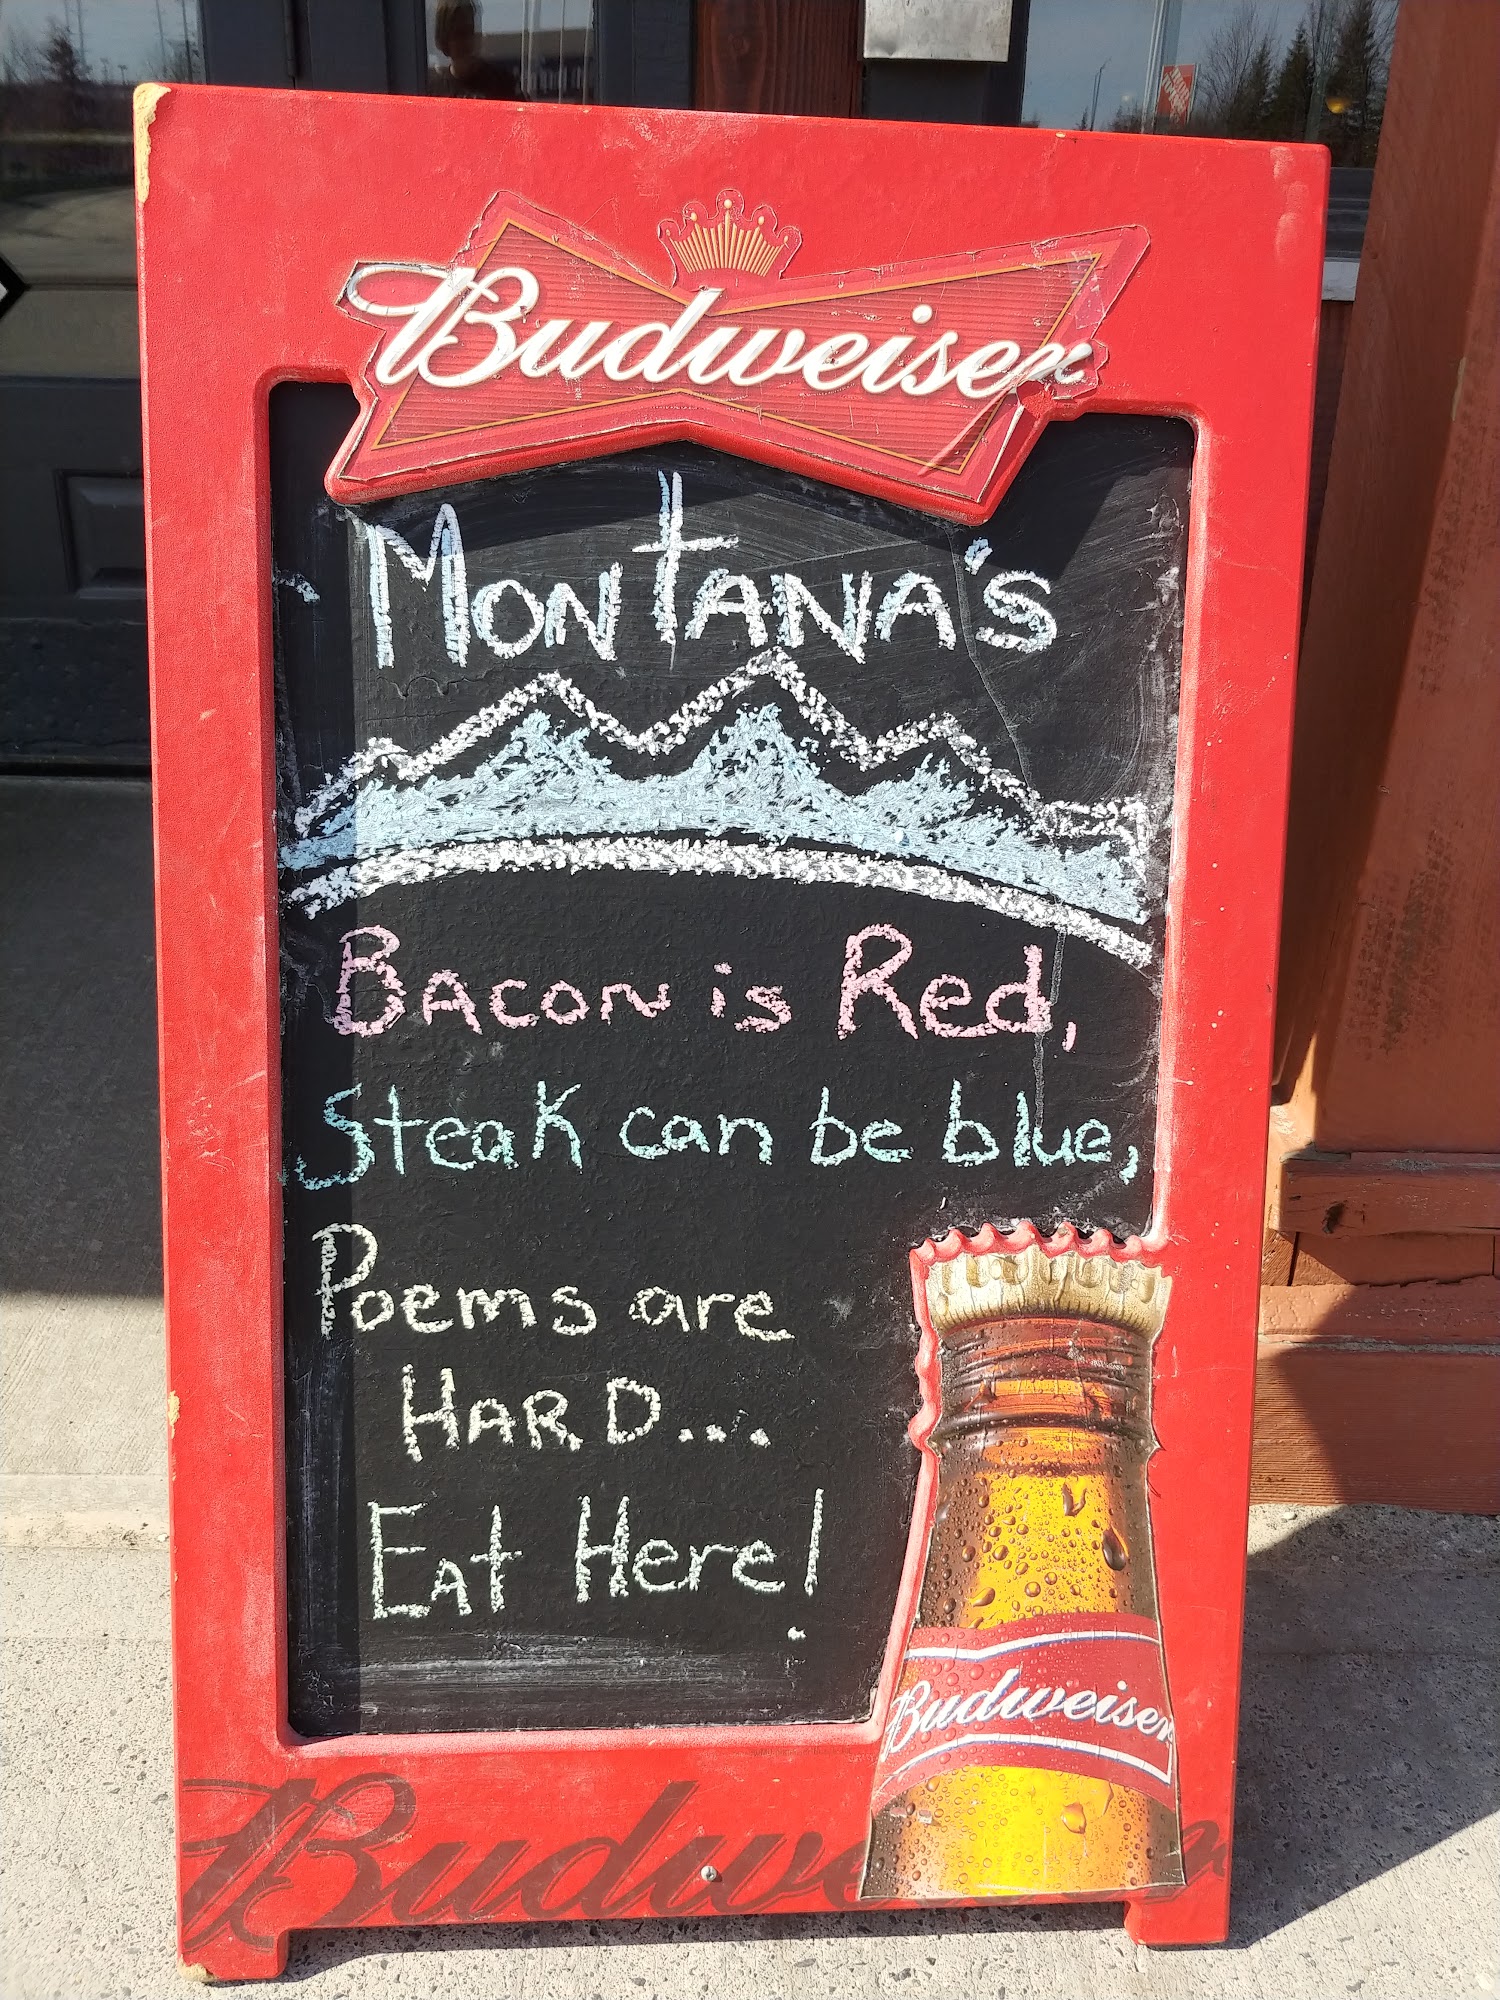 Budweiser
MonTana's
Bacon is Red,
Steak can be blue,
Poems are
HARD...
Eat Here!
Budweiser
Budwe